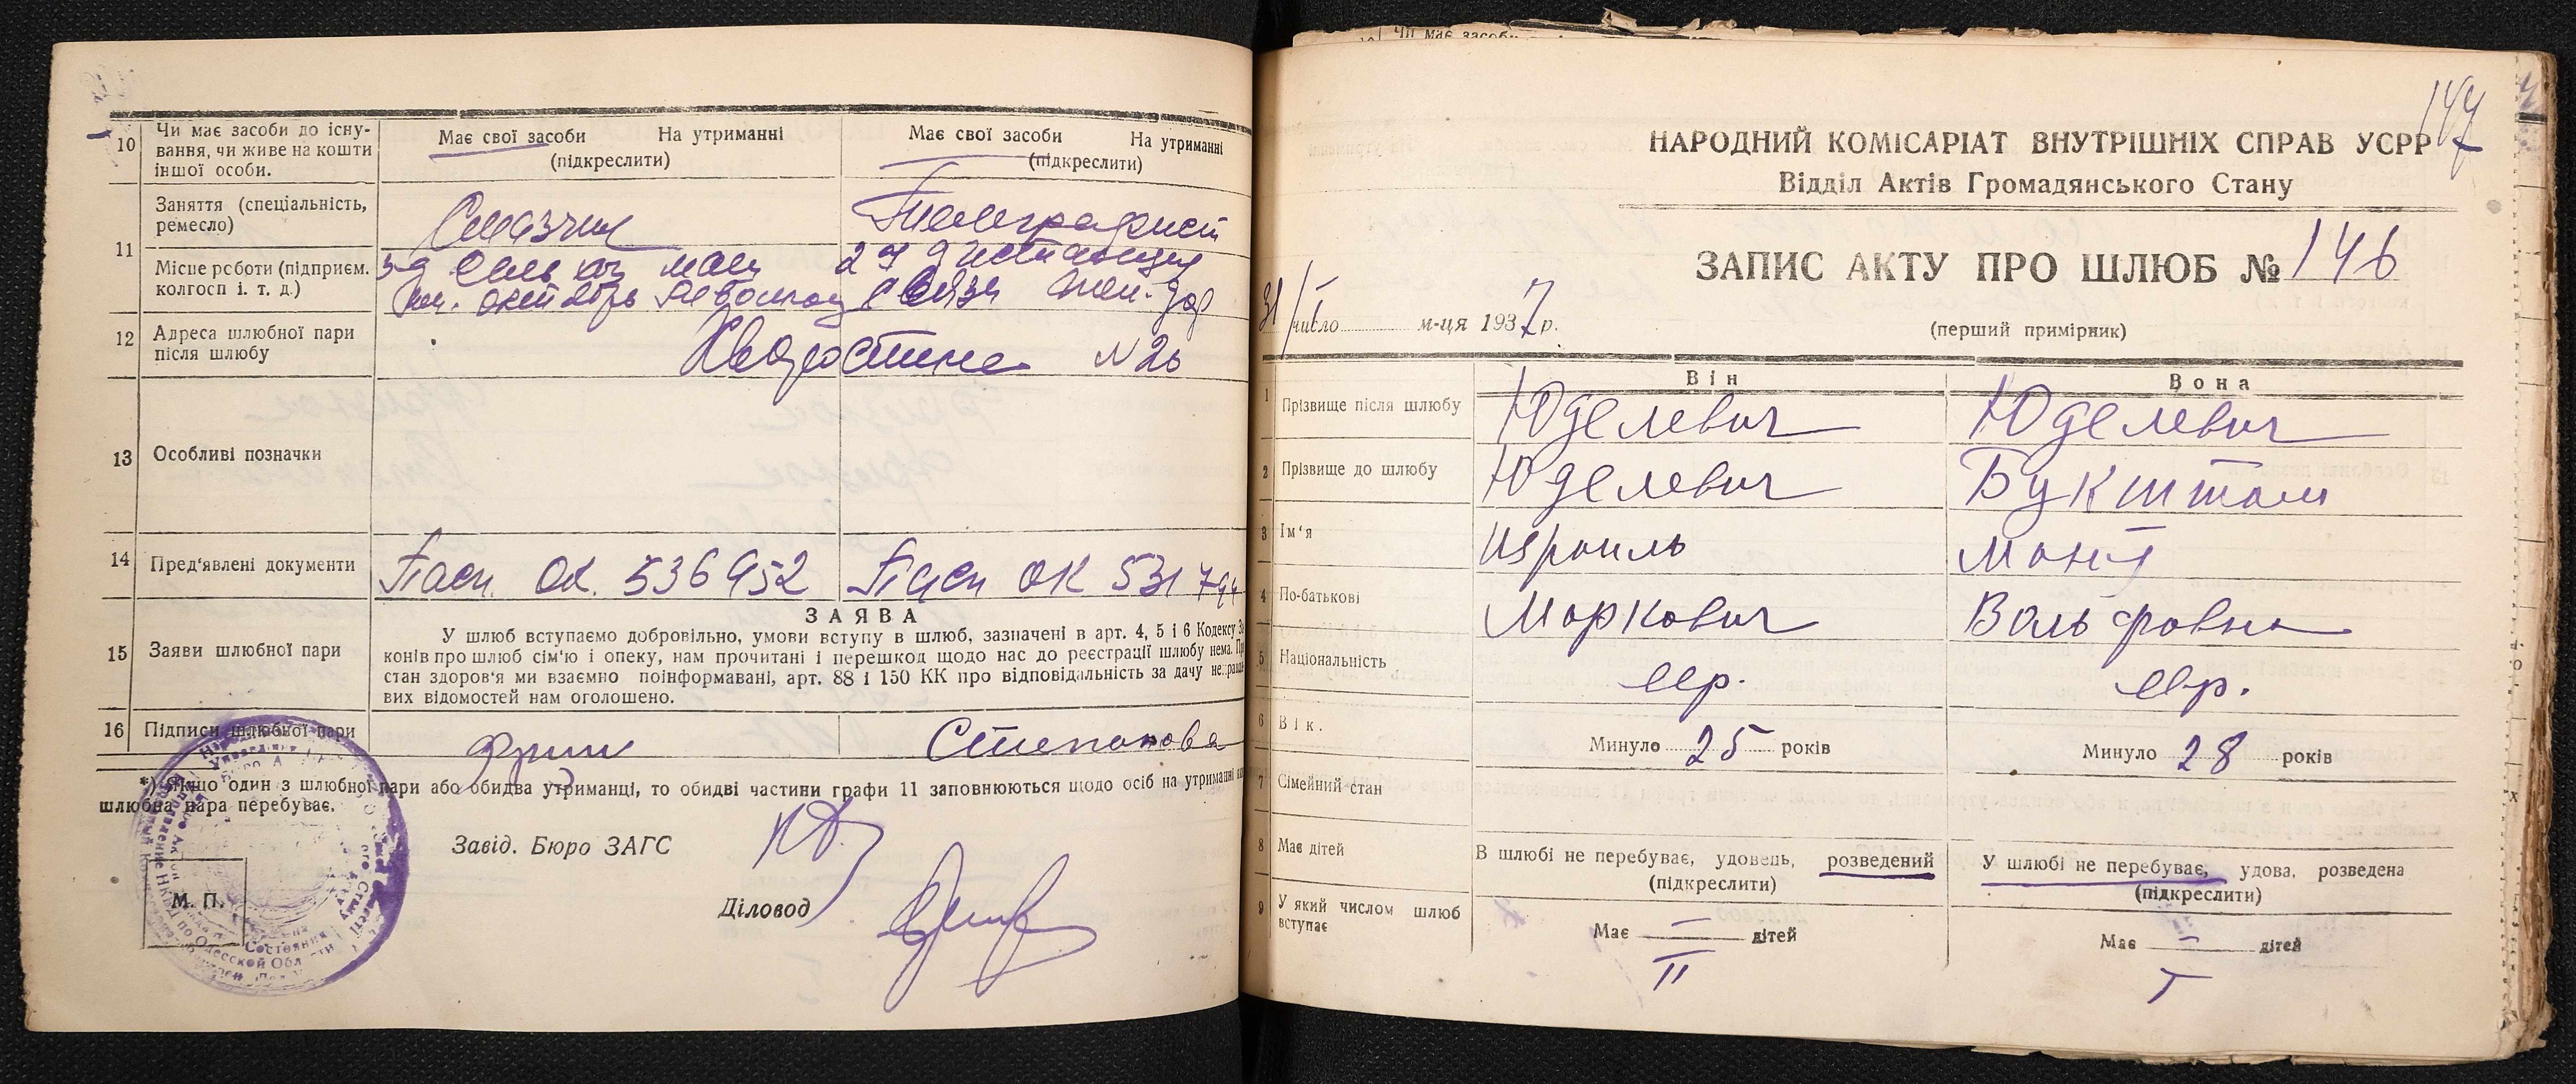 10 Чи має засоби до існу-
вання, чи живе на кошти
іншої особи.
Має свої засоби На утриманні
(підкреслити)
Має свої засоби На утриманні
(підкреслити)
11 Заняття (спеціальність,
ремесло)
Смазчик
Телеграфист
Місце роботи (підприєм.
колгосп і. т. д.)
з-д Сель хоз маш
им. октябрь Революц
2 я дистанция
связи жел. дор
12 Адреса шлюбної пари
після шлюбу
Хворостина N 26
13 Особливі позначки
14 Пред'явлені документи
Пасп. ОК. 536952
Пасп ОК 531794
15 Заяви шлюбної пари
ЗАЯВА
У шлюб вступаємо добровільно, умови вступу в шлюб, зазначені в арт. 4, 5 і 6 Кодексу За
конів про шлюб сім'ю і опеку, нам прочитані і перешкод щодо нас до реєстрації шлюбу нема. Пр
стан здоров'я ми взаємно поінформавані, арт. 88 і 150 КК про відповідальність за дачу неправди
вих відомостей нам оголошено.
16 Підписи шлюбної пари
Степанова
*) Якщо один з шлюбної пари або обидва утриманці, то обидві частини графи 11 заповнюються щодо осіб на утриманні
шлюбна пара перебуває.
Завід. Бюро ЗАГС
Діловод
М. П.
147
НАРОДНИЙ КОМІСАРІАТ ВНУТРІШНІХ СПРАВ УСРР
Відділ Актів Громадянського Стану
ЗАПИС АКТУ ПРО ШЛЮБ № 146
31/I число м-ця 1937 р.
(перший примірник)
Він
Вона
1 Прізвище після шлюбу
Юделевич
Юделевич
2 Прізвище до шлюбу
Юделевич
Букштам
3 Ім'я
Израиль
Маня
4 По-батькові
Маркович
Вольфовна
5 Національність
евр.
евр.
6 Вік.
Минуло 25 років
Минуло 28 років
7 Сімейний стан
В шлюбі не перебуває, удовець, розведений
(підкреслити)
У шлюбі не перебуває, удова, розведена
(підкреслити)
8 Має дітей
Має — дітей
Має — дітей
9 У який числом шлюб
вступає
II
I